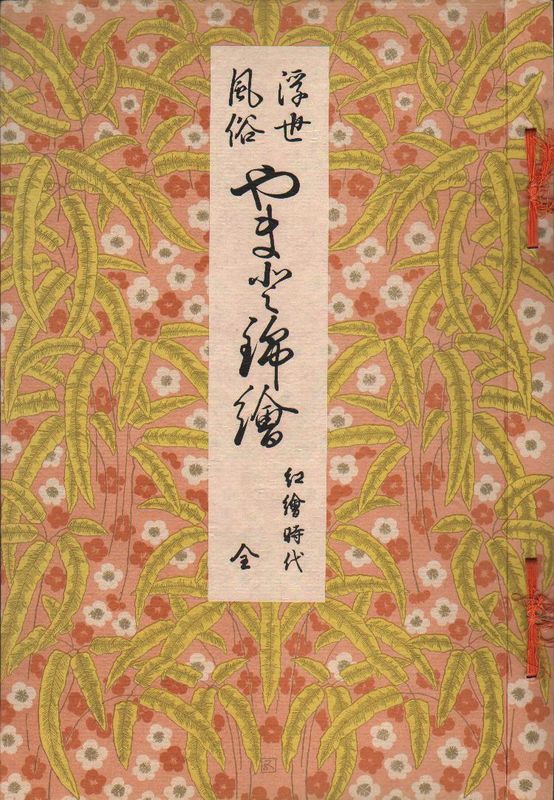 浮世
風俗
やまと錦繪
紅繪時代
全